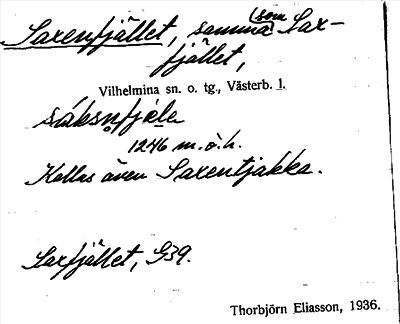 Saxenfjället, samma (som Sax-
fjället,
Vilhelmina sn. o. tg., Västerb. l.
sáksn̥fjæ̀le
1246 m.ö.h.
Kallas även Saxentjakka.
Saxfjället, G39.
Thorbjörn Eliasson, 1936.